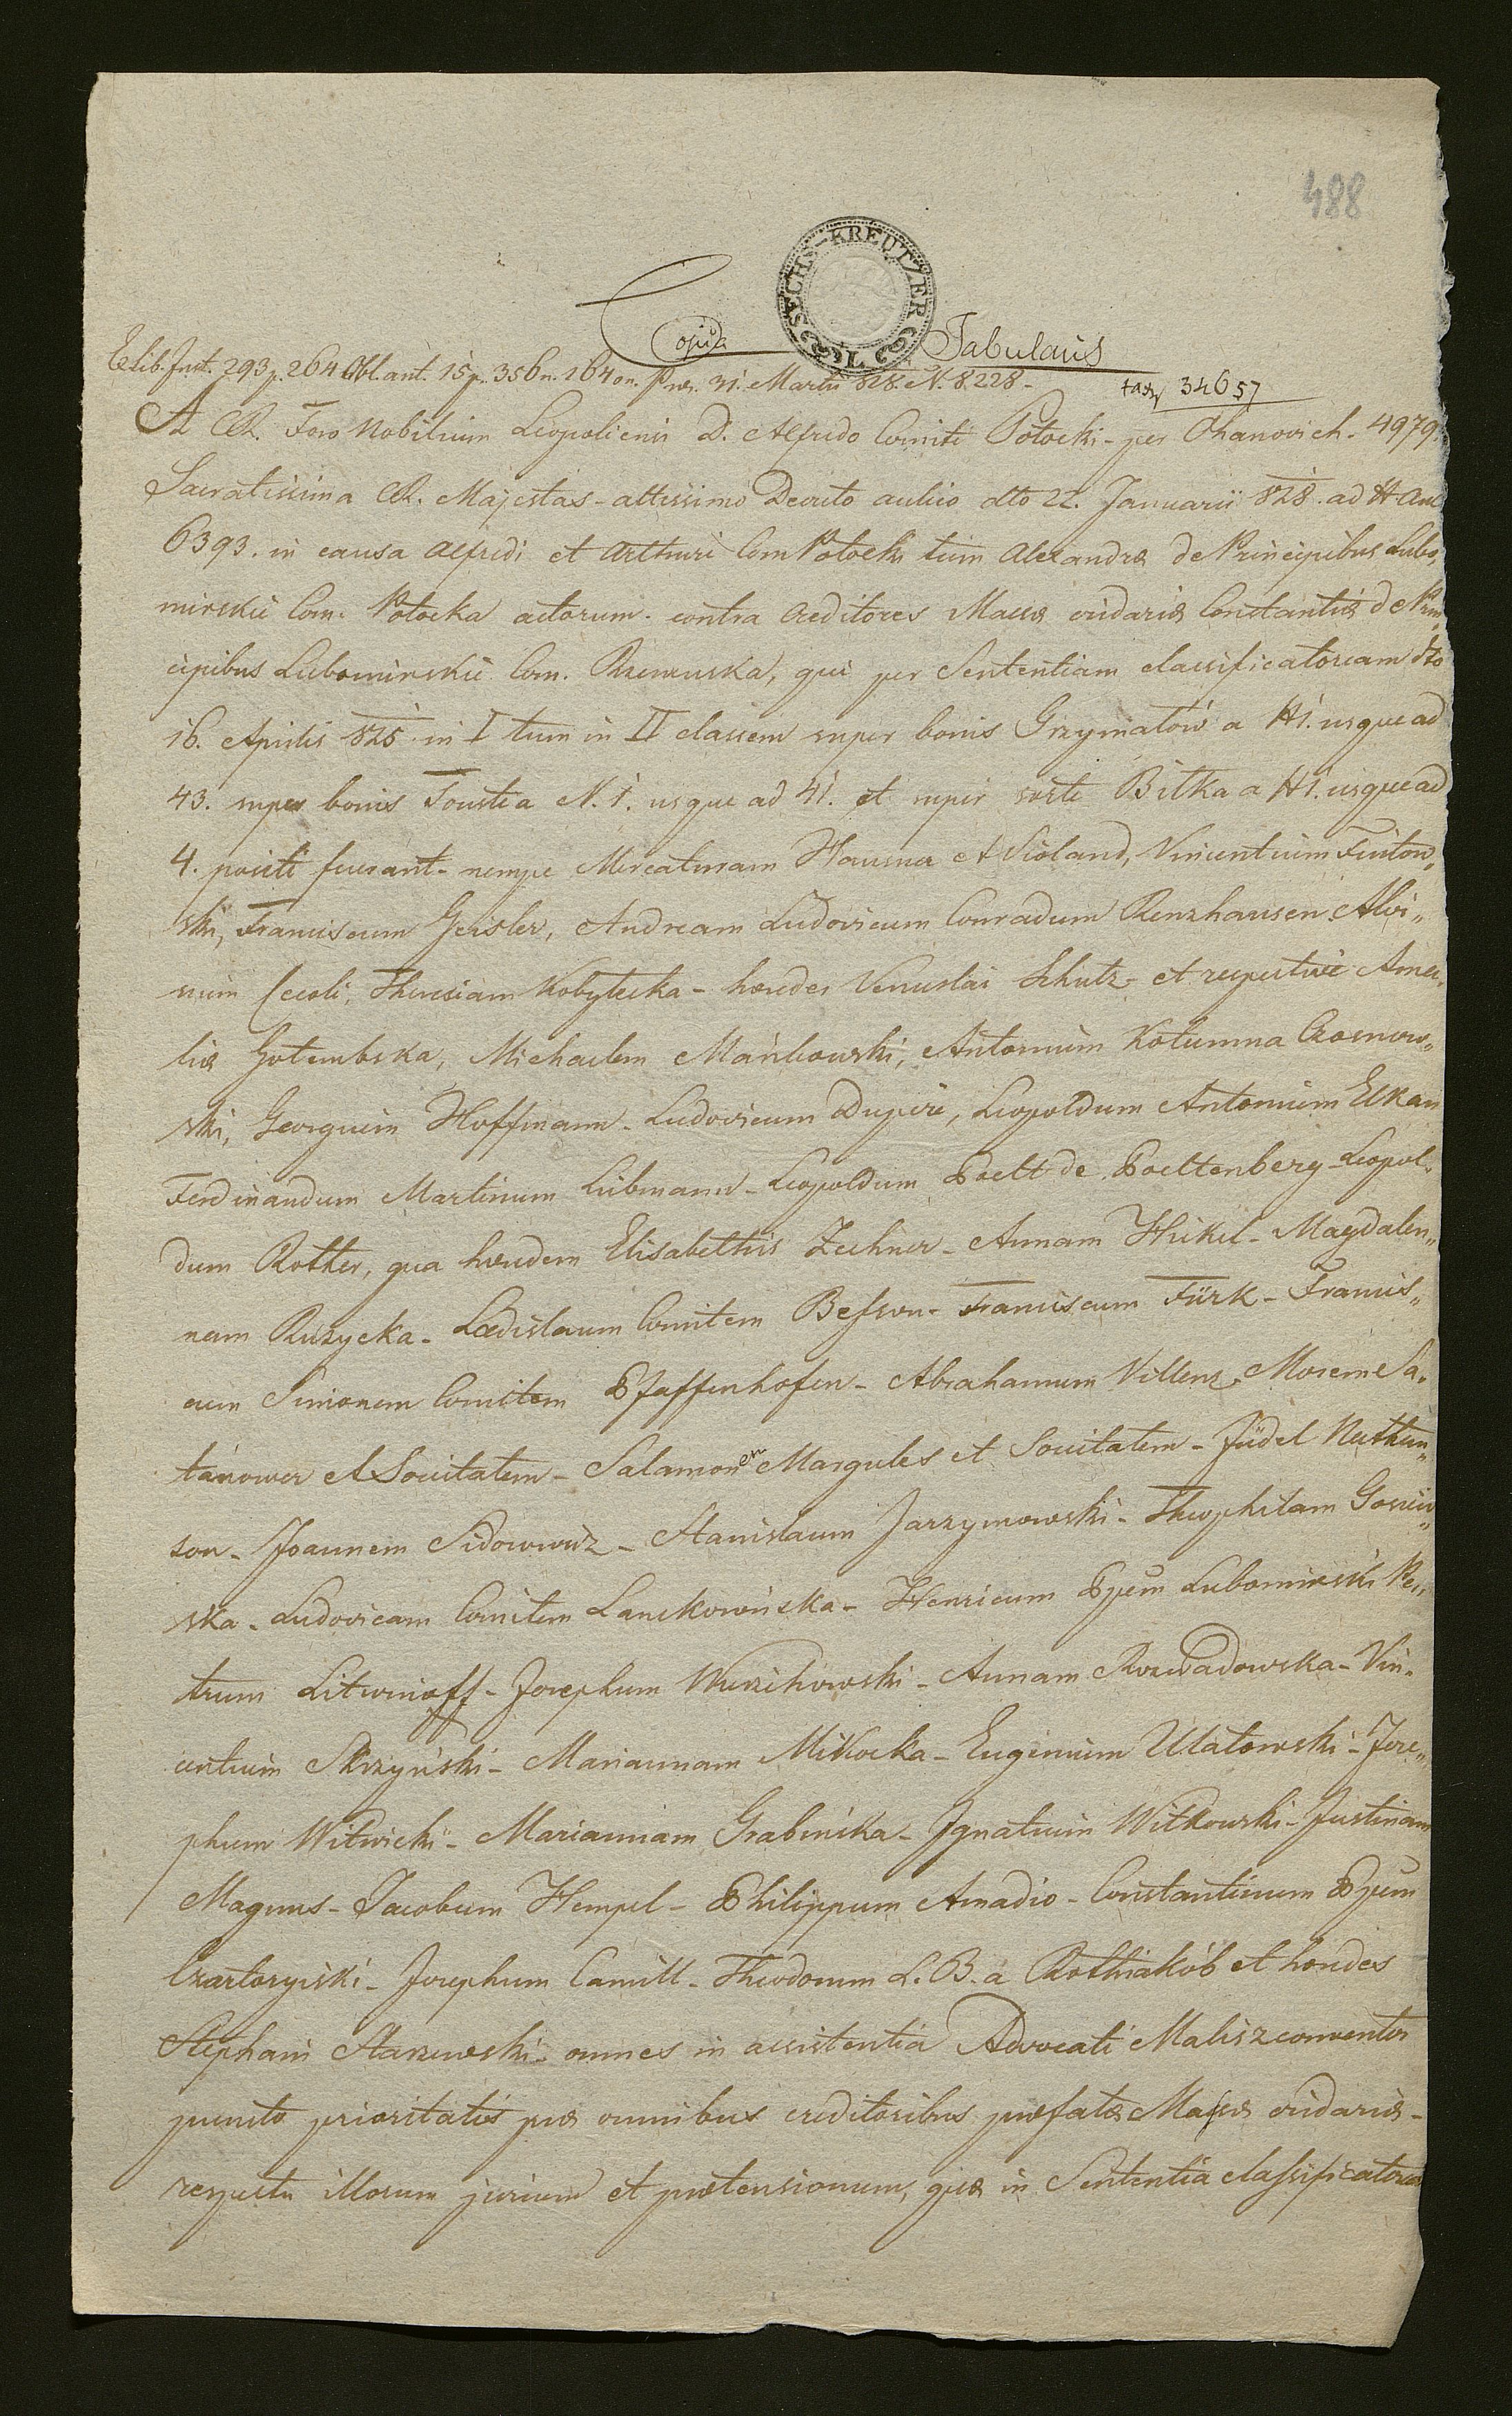 488
SECHS-KREUTZER
Copia Tabularis
E lib. Inst. 293 p. 264 Obl. ant. 15 p. 356 n. 164 on. Præs. 31. Martii 828. N. 8228 -
tax 34657
A CR. Foro Nobilium Leopoliensi D. Alfredo Comiti Potocki - per Ohanovich. 4979.
Sacratissima CR. Majestas - altissimo Decreto aulico dto 22. Januarii 828. ad N Aul
6393. in causa Alfredi et Arthuri Com Potocki tum Alexandræ de Principibus Lubo„
mirskie Com. Potocka actorum. contra Creditores Massæ cridariæ Constantiæ de Prin„
cipibus Lubomirskie Com. Rzewuska, qui per Sententiam classificatoriam dto
16. Aprilis 825 in I tum in II classem super bonis Grzymałów a N 1. usque ad
43. super bonis Touste a N. 1. usque ad 41. et super sorte Bitka a N 1. usque ad
4. positi fuerant - nempe Mercaturam Hausner et Violand, Vincentium
ski, Franciscum Geisler, Andream Ludovicum Conradum Renzhausen Alvi„
sium Cecoli, Theresiam Kobyłecka - hæredes Venceslai Schutz - et respective Ama„
liæ Gołembska, Michaelem Antonium Kolumna Czosnow„
ski, Georgium Hoffmann - Ludovicum Dupire, Leopoldum Antonium Elkan
Ferdinandum Martinum Liebmann - Leopoldum Poelt de Poeltenberg - Leopol„
dum Rother, qua hæredem Elisabethis Zechner - Annam Hickel - Magdalen„
nam Ruzycka - Ladislaum Comitem - Franciscum Türk - Francis„
cum Simonem Comitem Pfaffenhofen - Abrahamum Villenz, Mosem Sa„
tanower et Societatem - Salamonem Margules et Societatem - Jüdel Nathan„
son - Joannem Sidorowicz - Stanislaum Jarzymowski - Theophilam Gosiew„
ska - Ludovicam Comitem Lanckorońska - Henricum Ppem Lubomirski Pe„
trum Litwinoff - Josephum Wierzchowski - Annam Rozwadowska - Vin„
centium Skrzyński - Mariannam Mikocka - Eugenium Ulatowski - Jose„
phum Witwicki - Mariannam Grabińska - Ignatium Witkowski - Justinam
Magnus - Jacobum Hempel - Philippum Amadio - Constantinum Ppem
Czartoryiski - Josephum Camill - Theodorum L. B. a et hæredes
Stephani Starzewski - omnes in assistentia Advocati Malisz conventos
puncto prioritatis præ omnibus creditoribus præfatæ Massæ cridariæ -
respectu illorum jurium et prætensionum, quæ in Sententia classificatoria